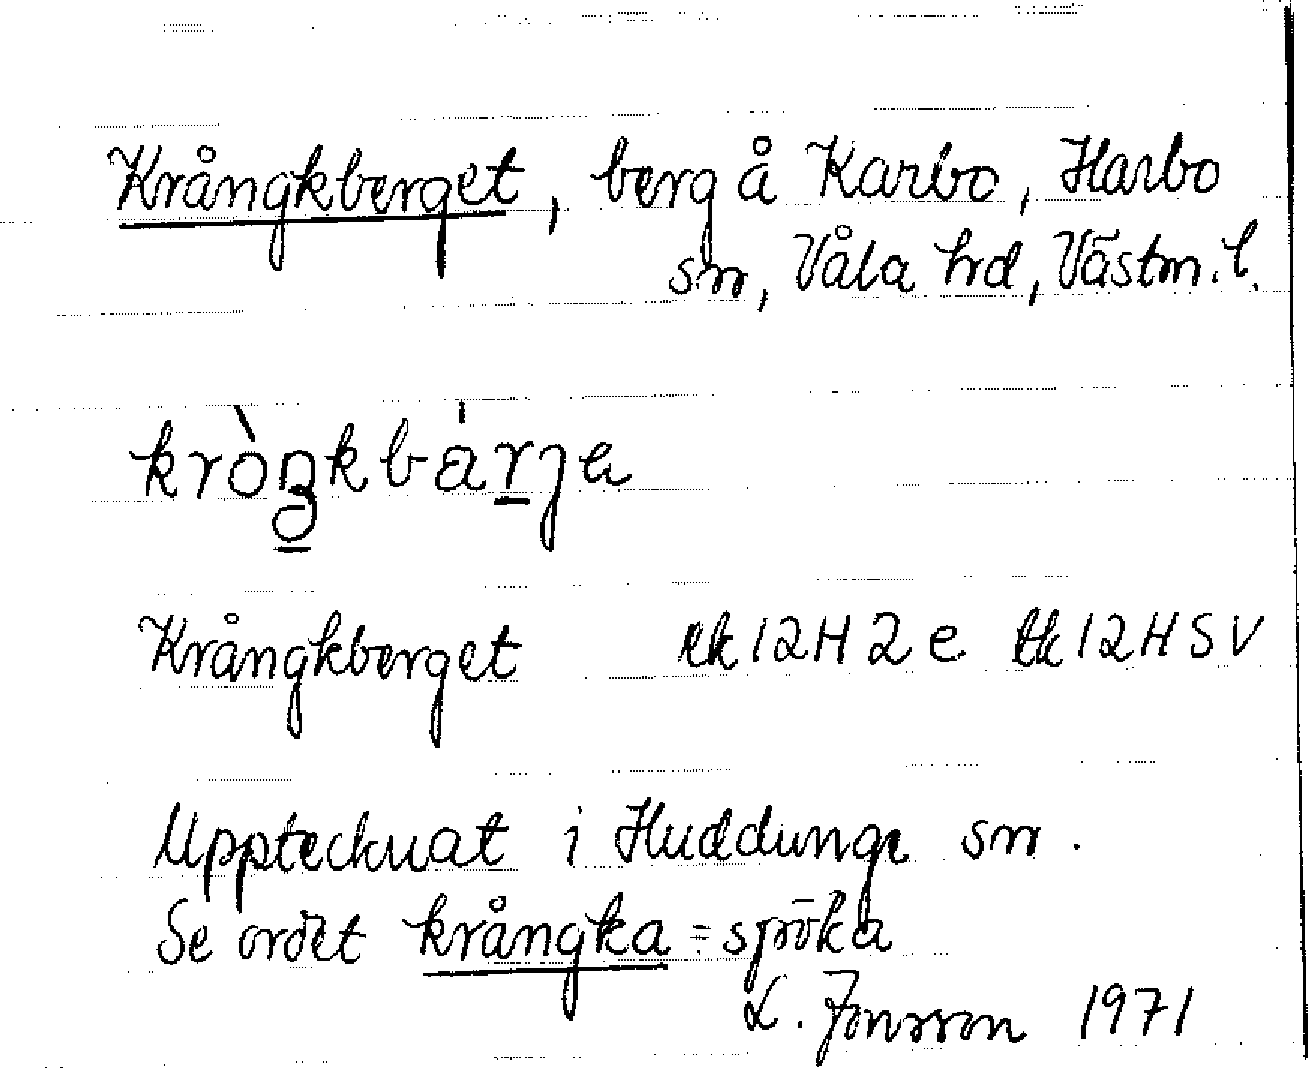 Krångkberget, berg å Karbo, Harbo
sn, Våla hd, Västm. l.
Krångkberget ek 12H2e tk 12HSV
Upptecknat i Huddunge sn.
Se ordet krångka = spöka
L. Jonsson 1971